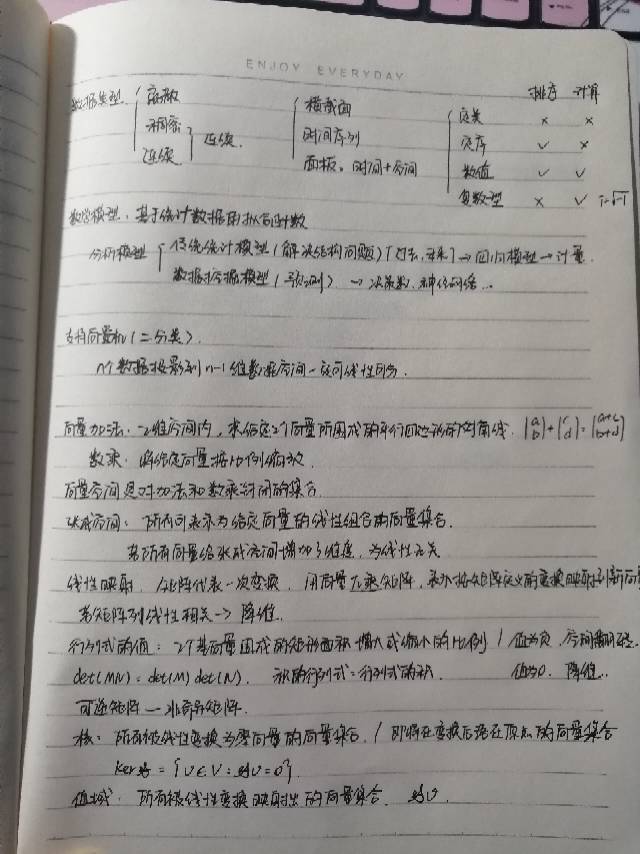 ENJOY EVERYDAY
排序 计算
数据类型 离散 横截面 定类 × ×
稠密 连续 时间序列 定序 √ ×
连续 面板:时间+空间 数值 √ √
复数型 × √ i=√-1
数学模型:基于统计数据用拟合函数
分析模型 传统统计模型(解决结构问题)[过去,未来]→回归模型→计量.
数据挖掘模型(预测) → 决策数,神经网络...
支持向量机(二分类).
n个数据投影到n-1维数据空间一定可线性可分.
向量加法:二维空间内,求给定2个向量所围成的平行四边形的对角线. (a b)+(c d)=(a+c b+d)
数乘:将给定向量按比例缩放.
向量空间是对加法和数乘封闭的集合.
张成空间:所有可表示为给定向量的线性组合的向量集合.
若所有向量给张成空间增加了维度,为线性无关
线性映射,矩阵代表一次变换,用向量左乘矩阵,表示按矩阵定义的变换映射到新向量
若矩阵列线性相关→降维.
行列式的值:2个基向量围成的矩形面积增大或缩小的比例 / 值为负,空间翻转.
det(MN)=det(M)det(N). 积的行列式=行列式的积. 值为0.降维.
可逆矩阵—非奇异矩阵.
核:所有被线性变换为零向量的向量集合. / 即将在变换后落在原点的向量集合
={v∈V: v=0}.
值域:所有被线性变换映射出的向量集合.